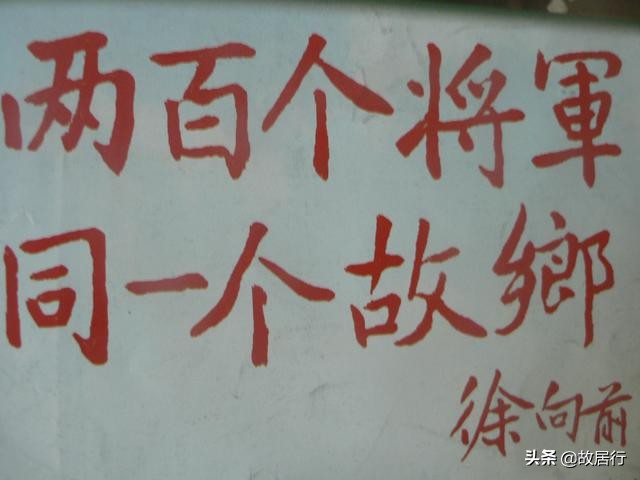 两百个将軍
同一个故鄉
徐向前
头条 @故居行